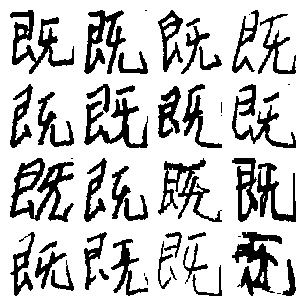 既既既既
既既既既
既既既既
既既既